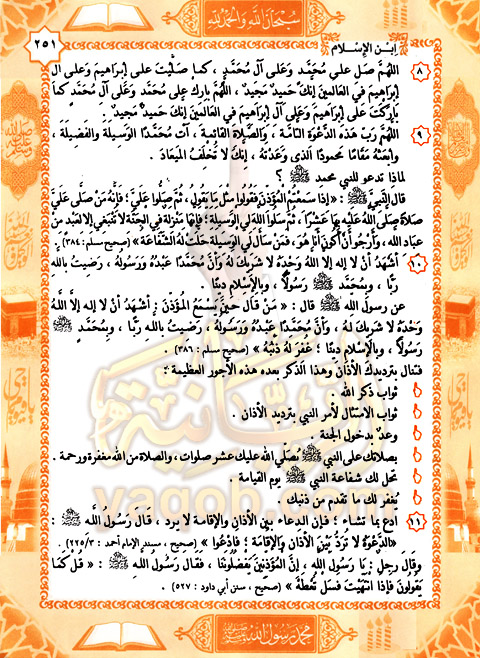 سبحان الله والحمد لله
ابن الإسلام
٢٥١
٨ اللهم صل على محمد وعلى آل محمد ، كما صليت على إبراهيم وعلى آل
إبراهيم في العالمين إنك حميد مجيد ، اللهم بارك على محمد وعلى آل محمد كما
باركت على إبراهيم وعلى آل إبراهيم في العالمين إنك حميد مجيد .
٩ اللهم رب هذه الدعوة التامة ، والصلاة القائمة ، آت محمدًا الوسيلة والفضيلة ،
وابعثه مقامًا محمودًا الذي وعدته ، إنك لا تخلف الميعاد .
لماذا تدعو للنبي محمد ﷺ ؟
قال النبي ﷺ : « إذا سمعتم المؤذن فقولوا مثل ما يقول ، ثم صلوا علي ؛ فإنه من صلى علي
صلاة صلى الله عليه بها عشرًا ، ثم سلوا الله لي الوسيلة ؛ فإنها منزلة في الجنة لا تنبغي إلا لعبد من
عباد الله ، وأرجو أن أكون أنا هو ، فمن سأل لي الوسيلة حلت له الشفاعة » (صحيح مسلم : ٣٨٤)
١٠ أشهد أن لا إله إلا الله وحده لا شريك له وأن محمدًا عبده ورسوله ، رضيت بالله
ربًّا ، وبمحمد ﷺ رسولًا ، وبالإسلام دينًا .
عن رسول الله ﷺ قال : « من قال حين يسمع المؤذن : أشهد أن لا إله إلا الله
وحده لا شريك له ، وأن محمدًا عبده ورسوله ، رضيت بالله ربًّا ، وبمحمد ﷺ
رسولًا ، وبالإسلام دينًا ؛ غفر له ذنبه » (صحيح مسلم : ٣٨٦) .
فتنال بترديدك الأذان وهذا الذكر بعده هذه الأجور العظيمة :
ثواب ذكر الله .
ثواب الامتثال لأمر النبي بترديد الأذان .
وعد بدخول الجنة .
بصلاتك على النبي ﷺ يصلي الله عليك عشر صلوات ، والصلاة من الله مغفرة ورحمة .
تحل لك شفاعة النبي ﷺ يوم القيامة .
يغفر لك ما تقدم من ذنبك .
١١ ادع بما تشاء ؛ فإن الدعاء بين الأذان والإقامة لا يرد ، قال رسول الله ﷺ :
«الدعوة لا ترد بين الأذان والإقامة ؛ فادعوا » (صحيح ، مسند الإمام أحمد : ٢٢٥/٣)
وقال رجل : يا رسول الله ، إن المؤذنين يفضلوننا ، فقال رسول الله ﷺ : « قل كما
يقولون فإذا انتهيت فسل تعطه » (صحيح ، سنن أبي داود : ٥٢٧)
yaqob.com
محمد رسول الله